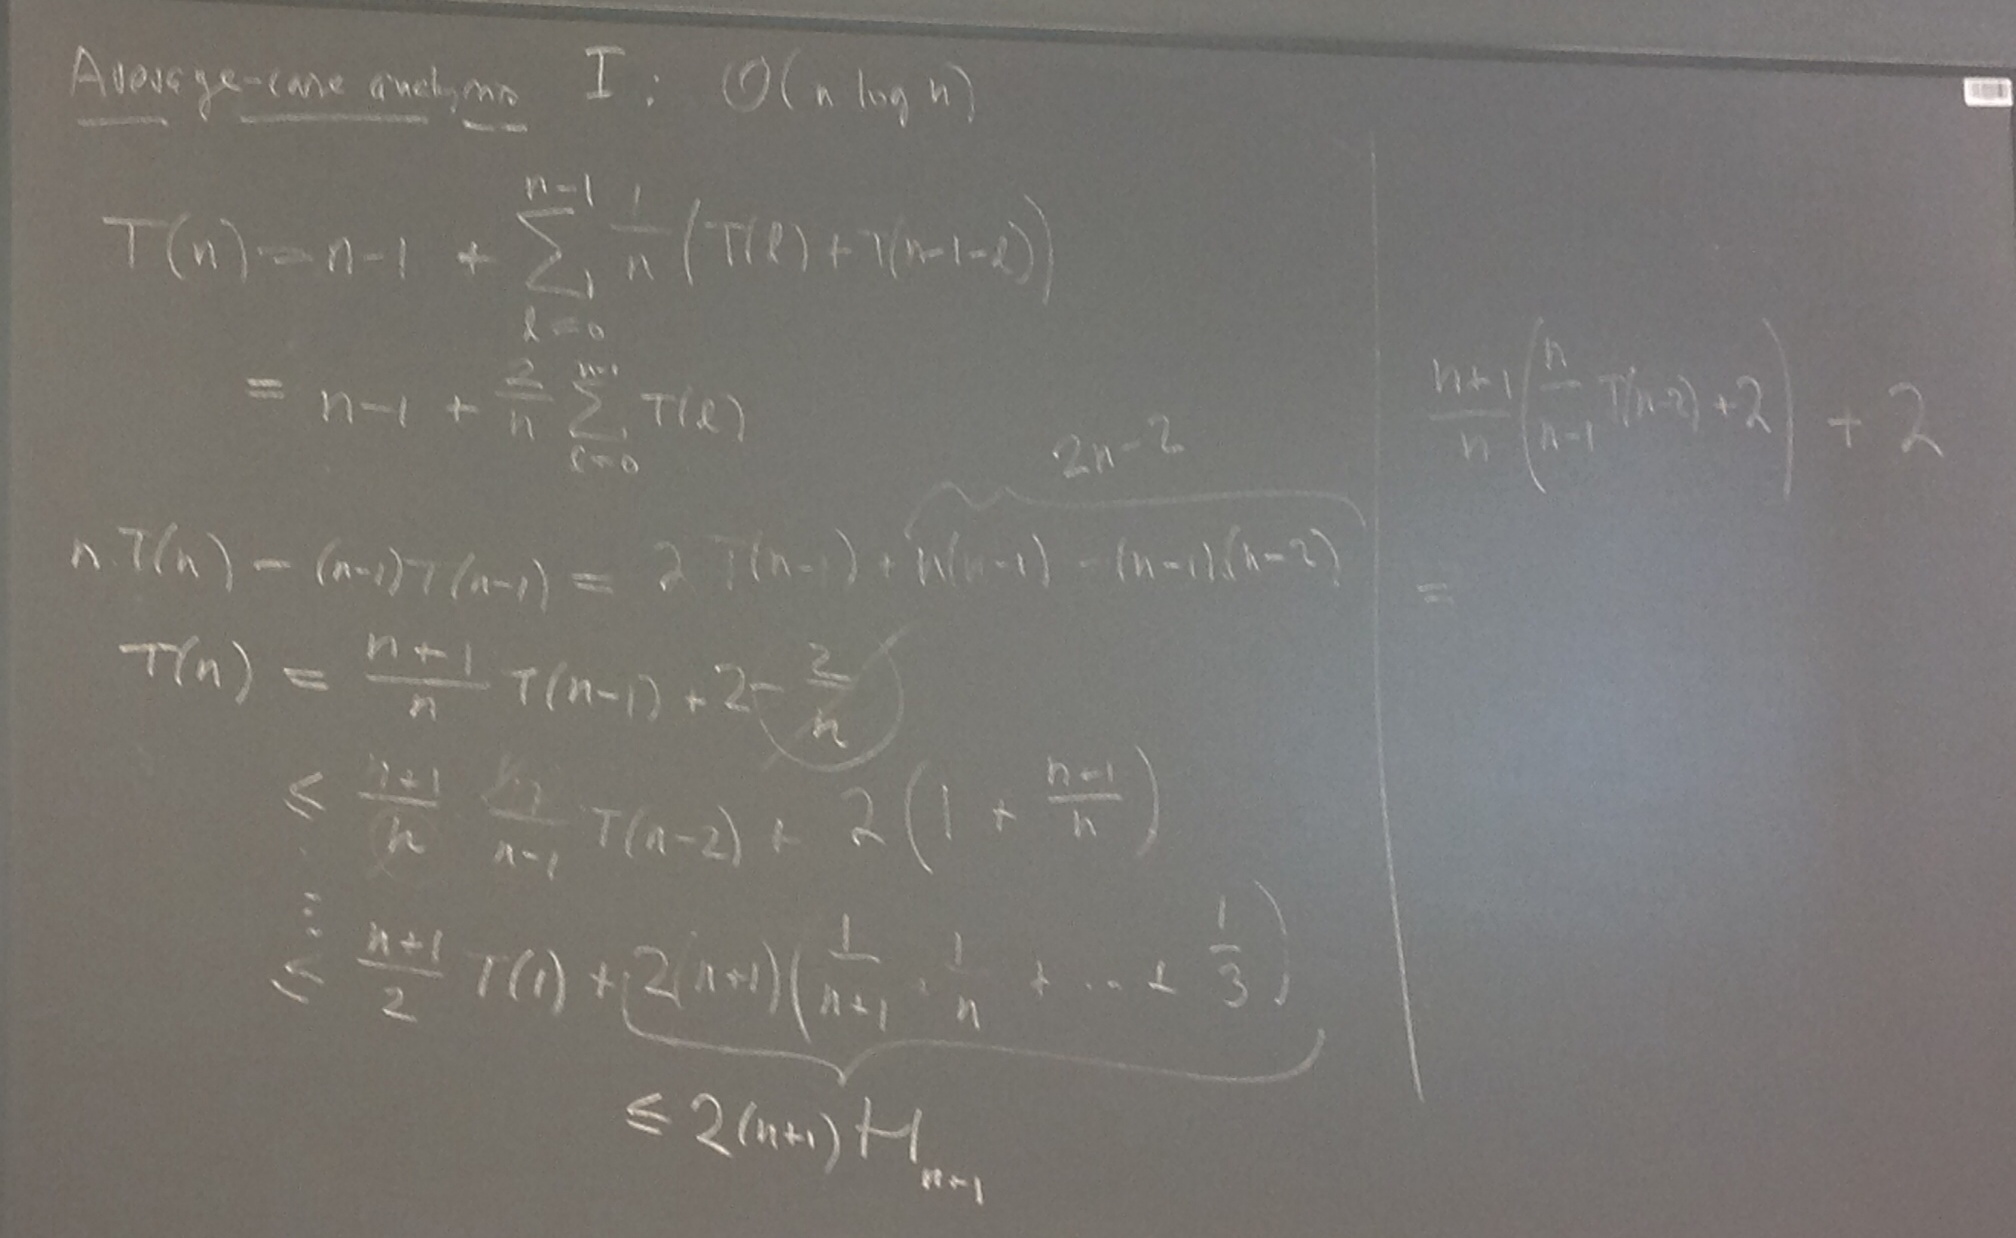 Average-case analysis I: O(n log n)
T(n) = n-1 + \sum_{l=0}^{n-1} \frac{1}{n} (T(l) + T(n-1-l))
= n-1 + \frac{2}{n} \sum_{l=0}^{n-1} T(l)
2n-2
n.T(n) - (n-1)T(n-1) = 2 T(n-1) + n(n-1) - (n-1)(n-2)
T(n) = \frac{n+1}{n} T(n-1) + 2 - \frac{2}{n}
≤ \frac{n+1}{n} \frac{n}{n-1} T(n-2) + 2 (1 + \frac{n+1}{n})
⋮
≤ \frac{n+1}{2} T(1) + 2(n+1) (\frac{1}{n+1} + \frac{1}{n} + ... + \frac{1}{3})
≤ 2(n+1) H_{n+1}
\frac{n+1}{n} (\frac{n}{n-1} T(n-2) + 2) + 2
=